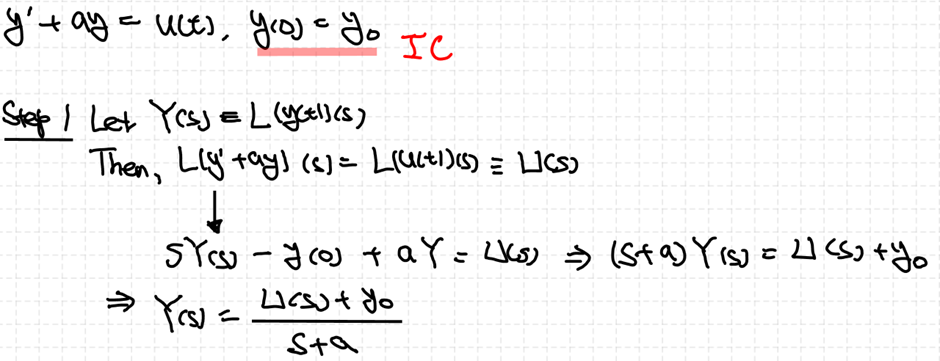 y' + ay = u(t), y(0) = y₀ IC
Step 1 Let Y(s) ≡ L(y(t))(s)
Then, L(y' + ay)(s) = L(u(t))(s) ≡ U(s)
↓
sY(s) - y(0) + aY = U(s) ⇒ (s+a)Y(s) = U(s) + y₀
⇒ Y(s) = \frac{U(s) + y₀}{s+a}